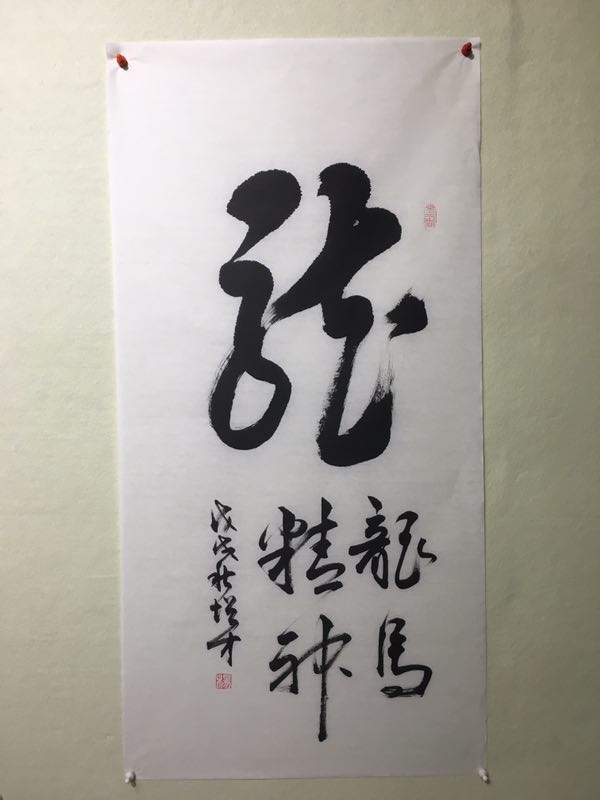 龍
龍馬
精神
戊戌秋增才